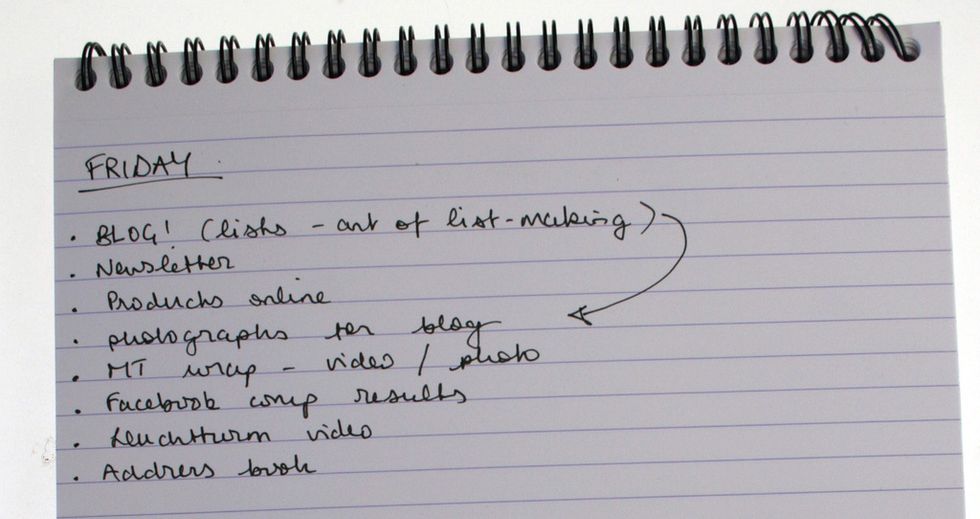 FRIDAY
· BLOG! (lists - art of list-making)
· Newsletter
· Products online
· photographs for blog
· MT wrap - video / photo
· Facebook comp results
· Leuchtturm video
· Address book